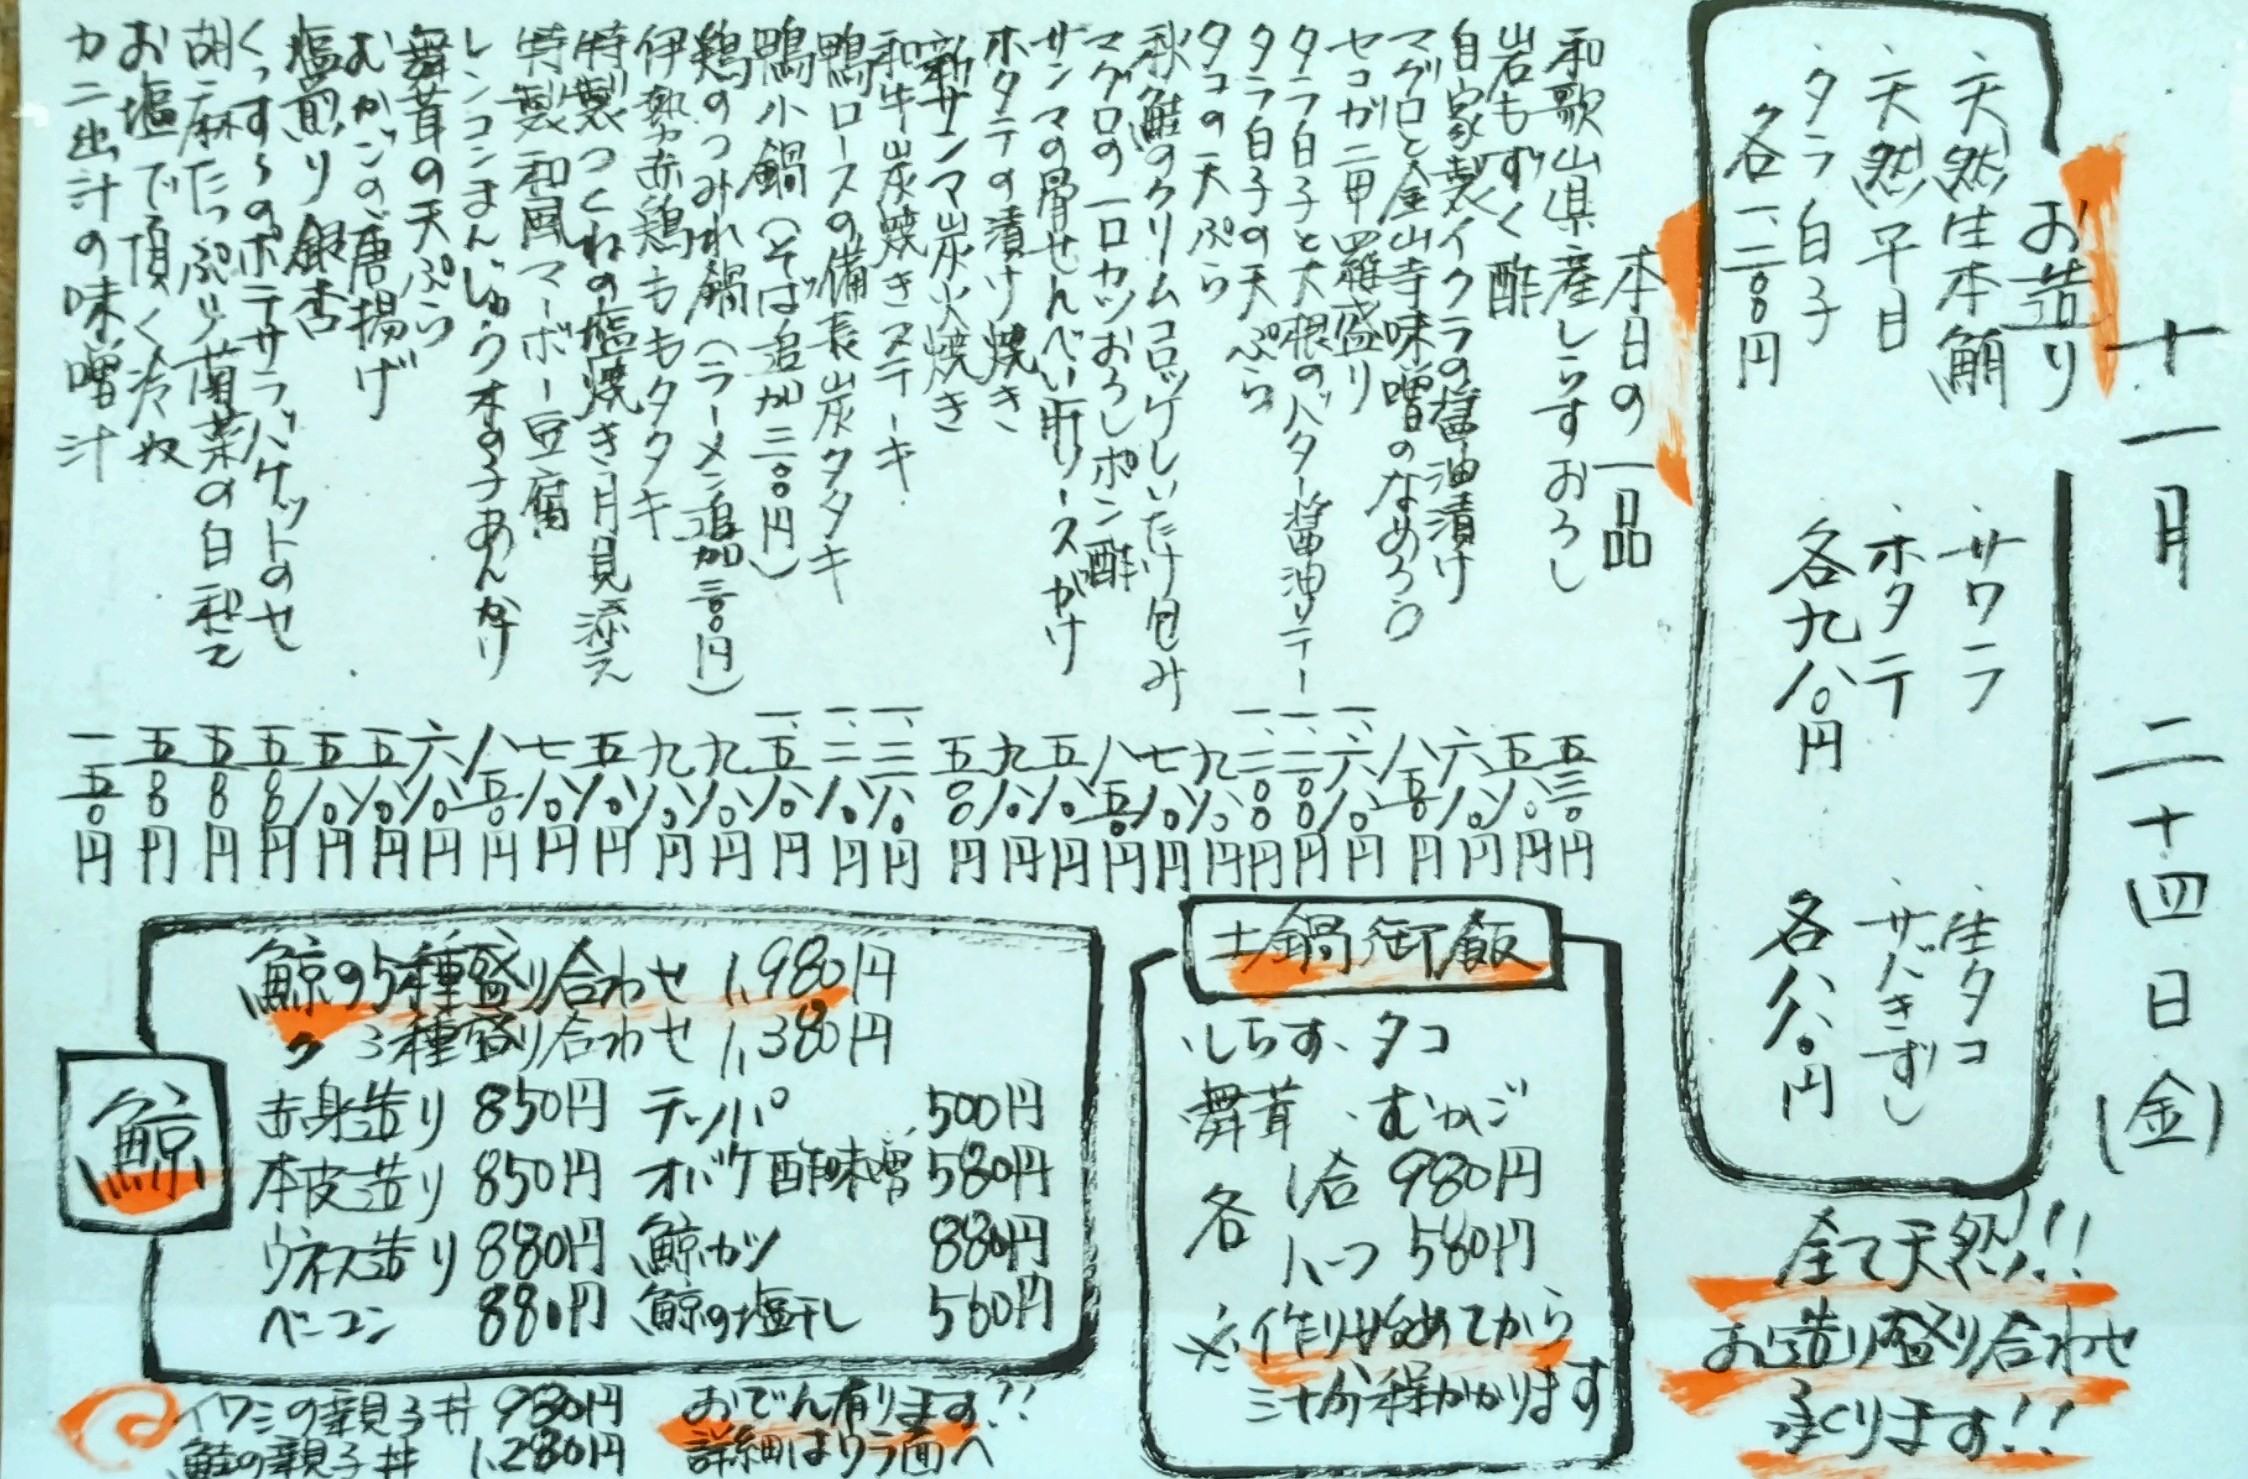 十一月 二十四日(金)
お造り
・天然生本鮪
・天然平目
・タラ白子
各一、二〇〇円
・サワラ
・ホタテ
各九八〇円
・生タコ
・サバきずし
各八八〇円
全て天然!!
お造り盛り合わせ
承ります!!
本日の一品
和歌山県産しらすおろし 五三〇円
岩もずく酢 五八〇円
自家製イクラの醤油漬け 六八〇円
マグロと金山寺味噌のなめろう 八五〇円
セコガニ甲羅盛り 一、六八〇円
タラ白子と大根のバター醤油ソテー 一、二〇〇円
タラ白子の天ぷら 一、二〇〇円
タコの天ぷら 九八〇円
秋鮭のクリームコロッケしいたけ包み 七八〇円
マグロの一口カツおろしポン酢 八五〇円
サンマの骨せんべい肝ソースがけ 五八〇円
ホタテの漬け焼き 九八〇円
新サンマ炭火焼き 五〇〇円
和牛炭焼きステーキ 一、三八〇円
鴨ロースの備長炭タタキ 一、二八〇円
鴨小鍋(そば追加三〇〇円) 一、五八〇円
鶏のつみれ鍋(ラーメン追加三〇〇円) 九八〇円
伊勢赤鶏ももタタキ 九八〇円
特製つくねの塩焼き月見添え 五八〇円
特製和風マーボー豆腐 七八〇円
レンコンまんじゅう木の子あんかけ 八五〇円
舞茸の天ぷら 六八〇円
むかごの唐揚げ 五八〇円
塩煎り銀杏 五八〇円
くっす〜のポテサラバケットのせ 五〇〇円
胡麻たっぷり菊菜の白和え 五〇〇円
お塩で頂く冷奴 五〇〇円
カニ出汁の味噌汁 一五〇円
土鍋御飯
・しらす、タコ
舞茸、むかご
各 1合 980円
ハーフ 580円
※作り始めてから
三十分程かかります
鯨
鯨の5種盛り合わせ 1,980円
〃 3種盛り合わせ 1,380円
赤身造り 850円 テッパ 500円
本皮造り 850円 オバケ酢味噌 580円
ウネス造り 880円 鯨カツ 880円
ベーコン 880円 鯨の塩干し 560円
イワシの親子丼 980円
鮭の親子丼 1,280円
おでん有ります!!
詳細はウラ面へ